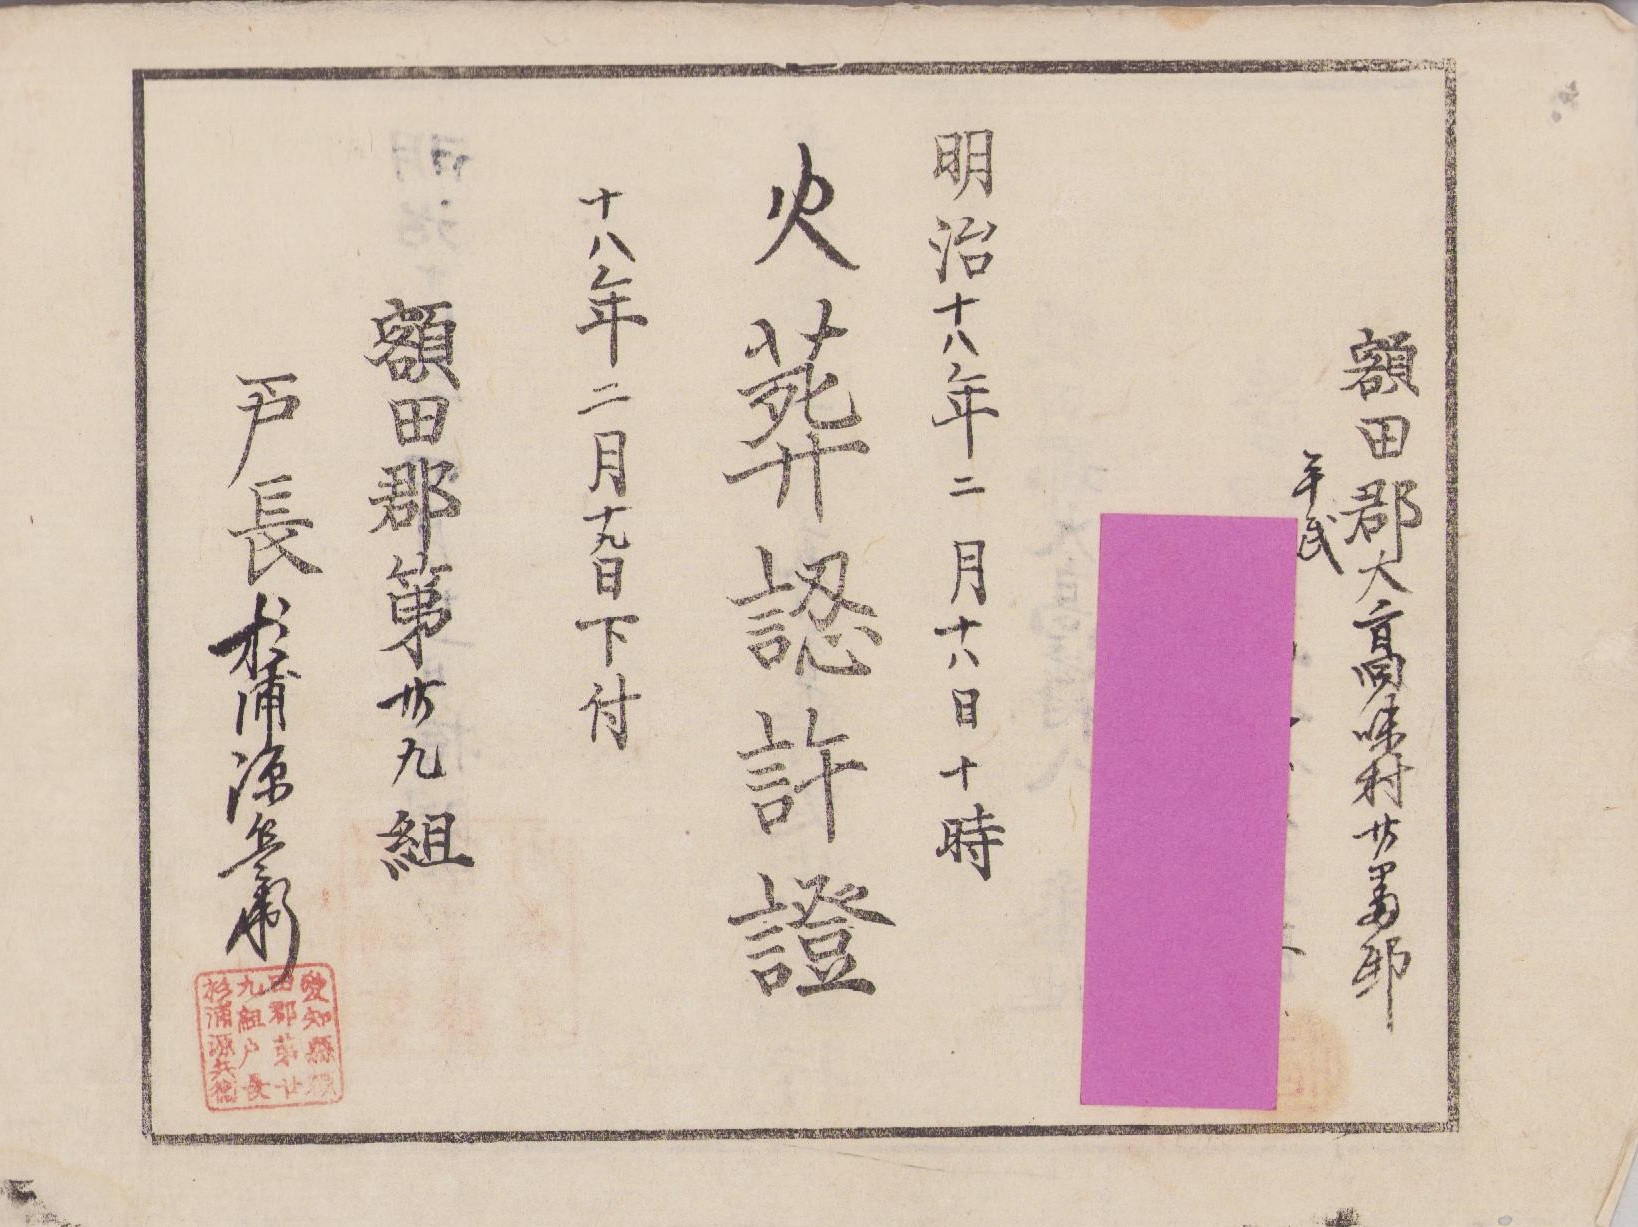 額田郡大高味村廿番邸
平民
明治十八年二月十八日十時
火葬認許證
十八年二月十九日下付
額田郡第廿九組
戸長杉浦源兵衛
愛知縣額
田郡第廿
九組戸長
杉浦源兵衛